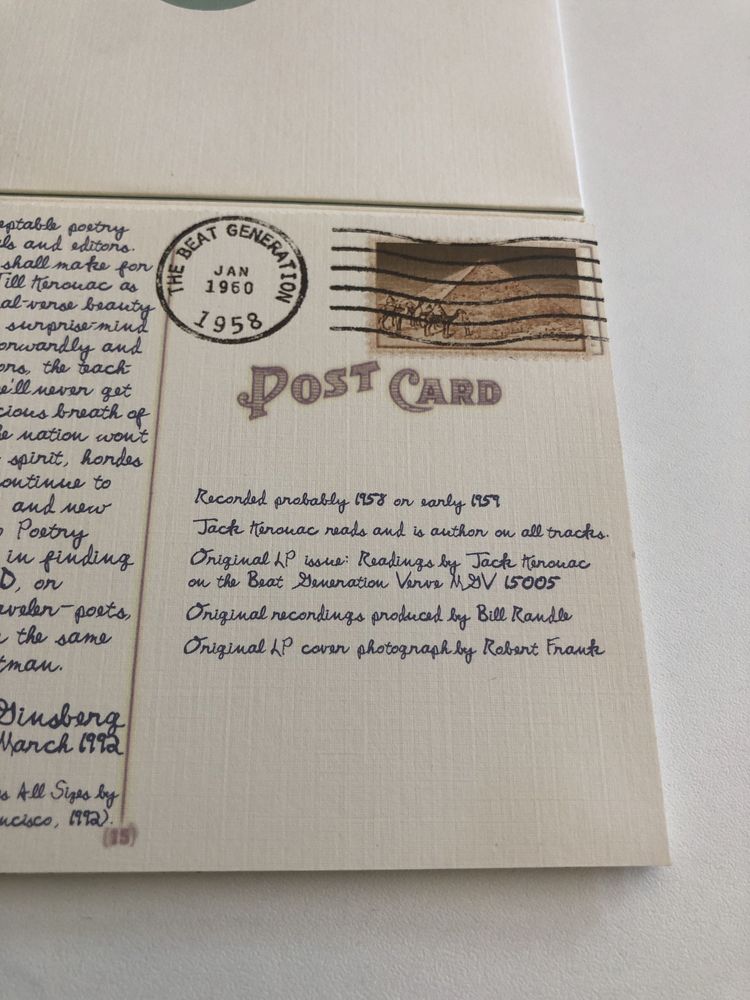 eptable poetry
ls and editors.
shall make for
Till Kerouac as
al-verse beauty
surprise-mind
orwardly and
ons, the teach-
e'll never get
cious breath of
e nation won't
spirit, hordes
ontinue to
and new
o Poetry
in finding
D, or
aveler-poets,
n the same
tman.
Ginsberg
March 1992
s All Sizes by
ncisco, 1992).
(15)
THE BEAT GENERATION
JAN
1960
1958
POST CARD
Recorded probably 1958 or early 1959
Jack Kerouac reads and is author on all tracks.
Original LP issue: Readings by Jack Kerouac
on the Beat Generation Verve MGV 15005
Original recordings produced by Bill Randle
Original LP cover photograph by Robert Frank